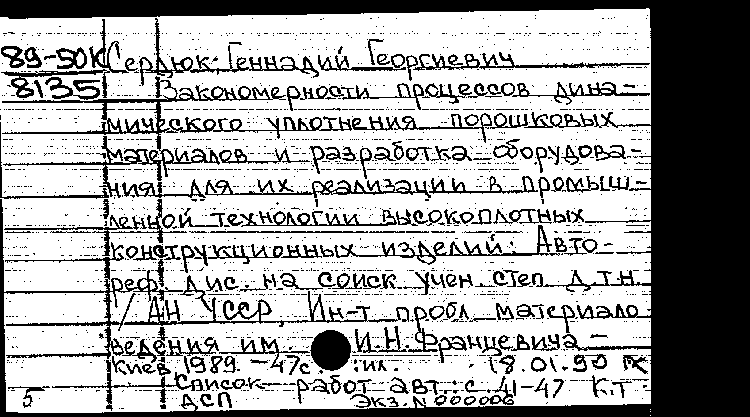 89-50К Сердюк, Геннадий Георгиевич
8135 Закономерности процессов дина-
мического уплотнения порошковых
материалов и разработка оборудова-
ния для их реализации в промыш-
ленной технологии высокоплотных
конструкционных изделий: Авто-
реф. дис. на соиск учен. степ д.т.н.
/ АН УССР, Ин-т пробл материало
ведения им. И.Н. Францевича –
Киев 1989. – 47с. : ил. 18.01.90
Список работ авт.: с. 41-47 К.Т
5 ДСП Экз. N 000006